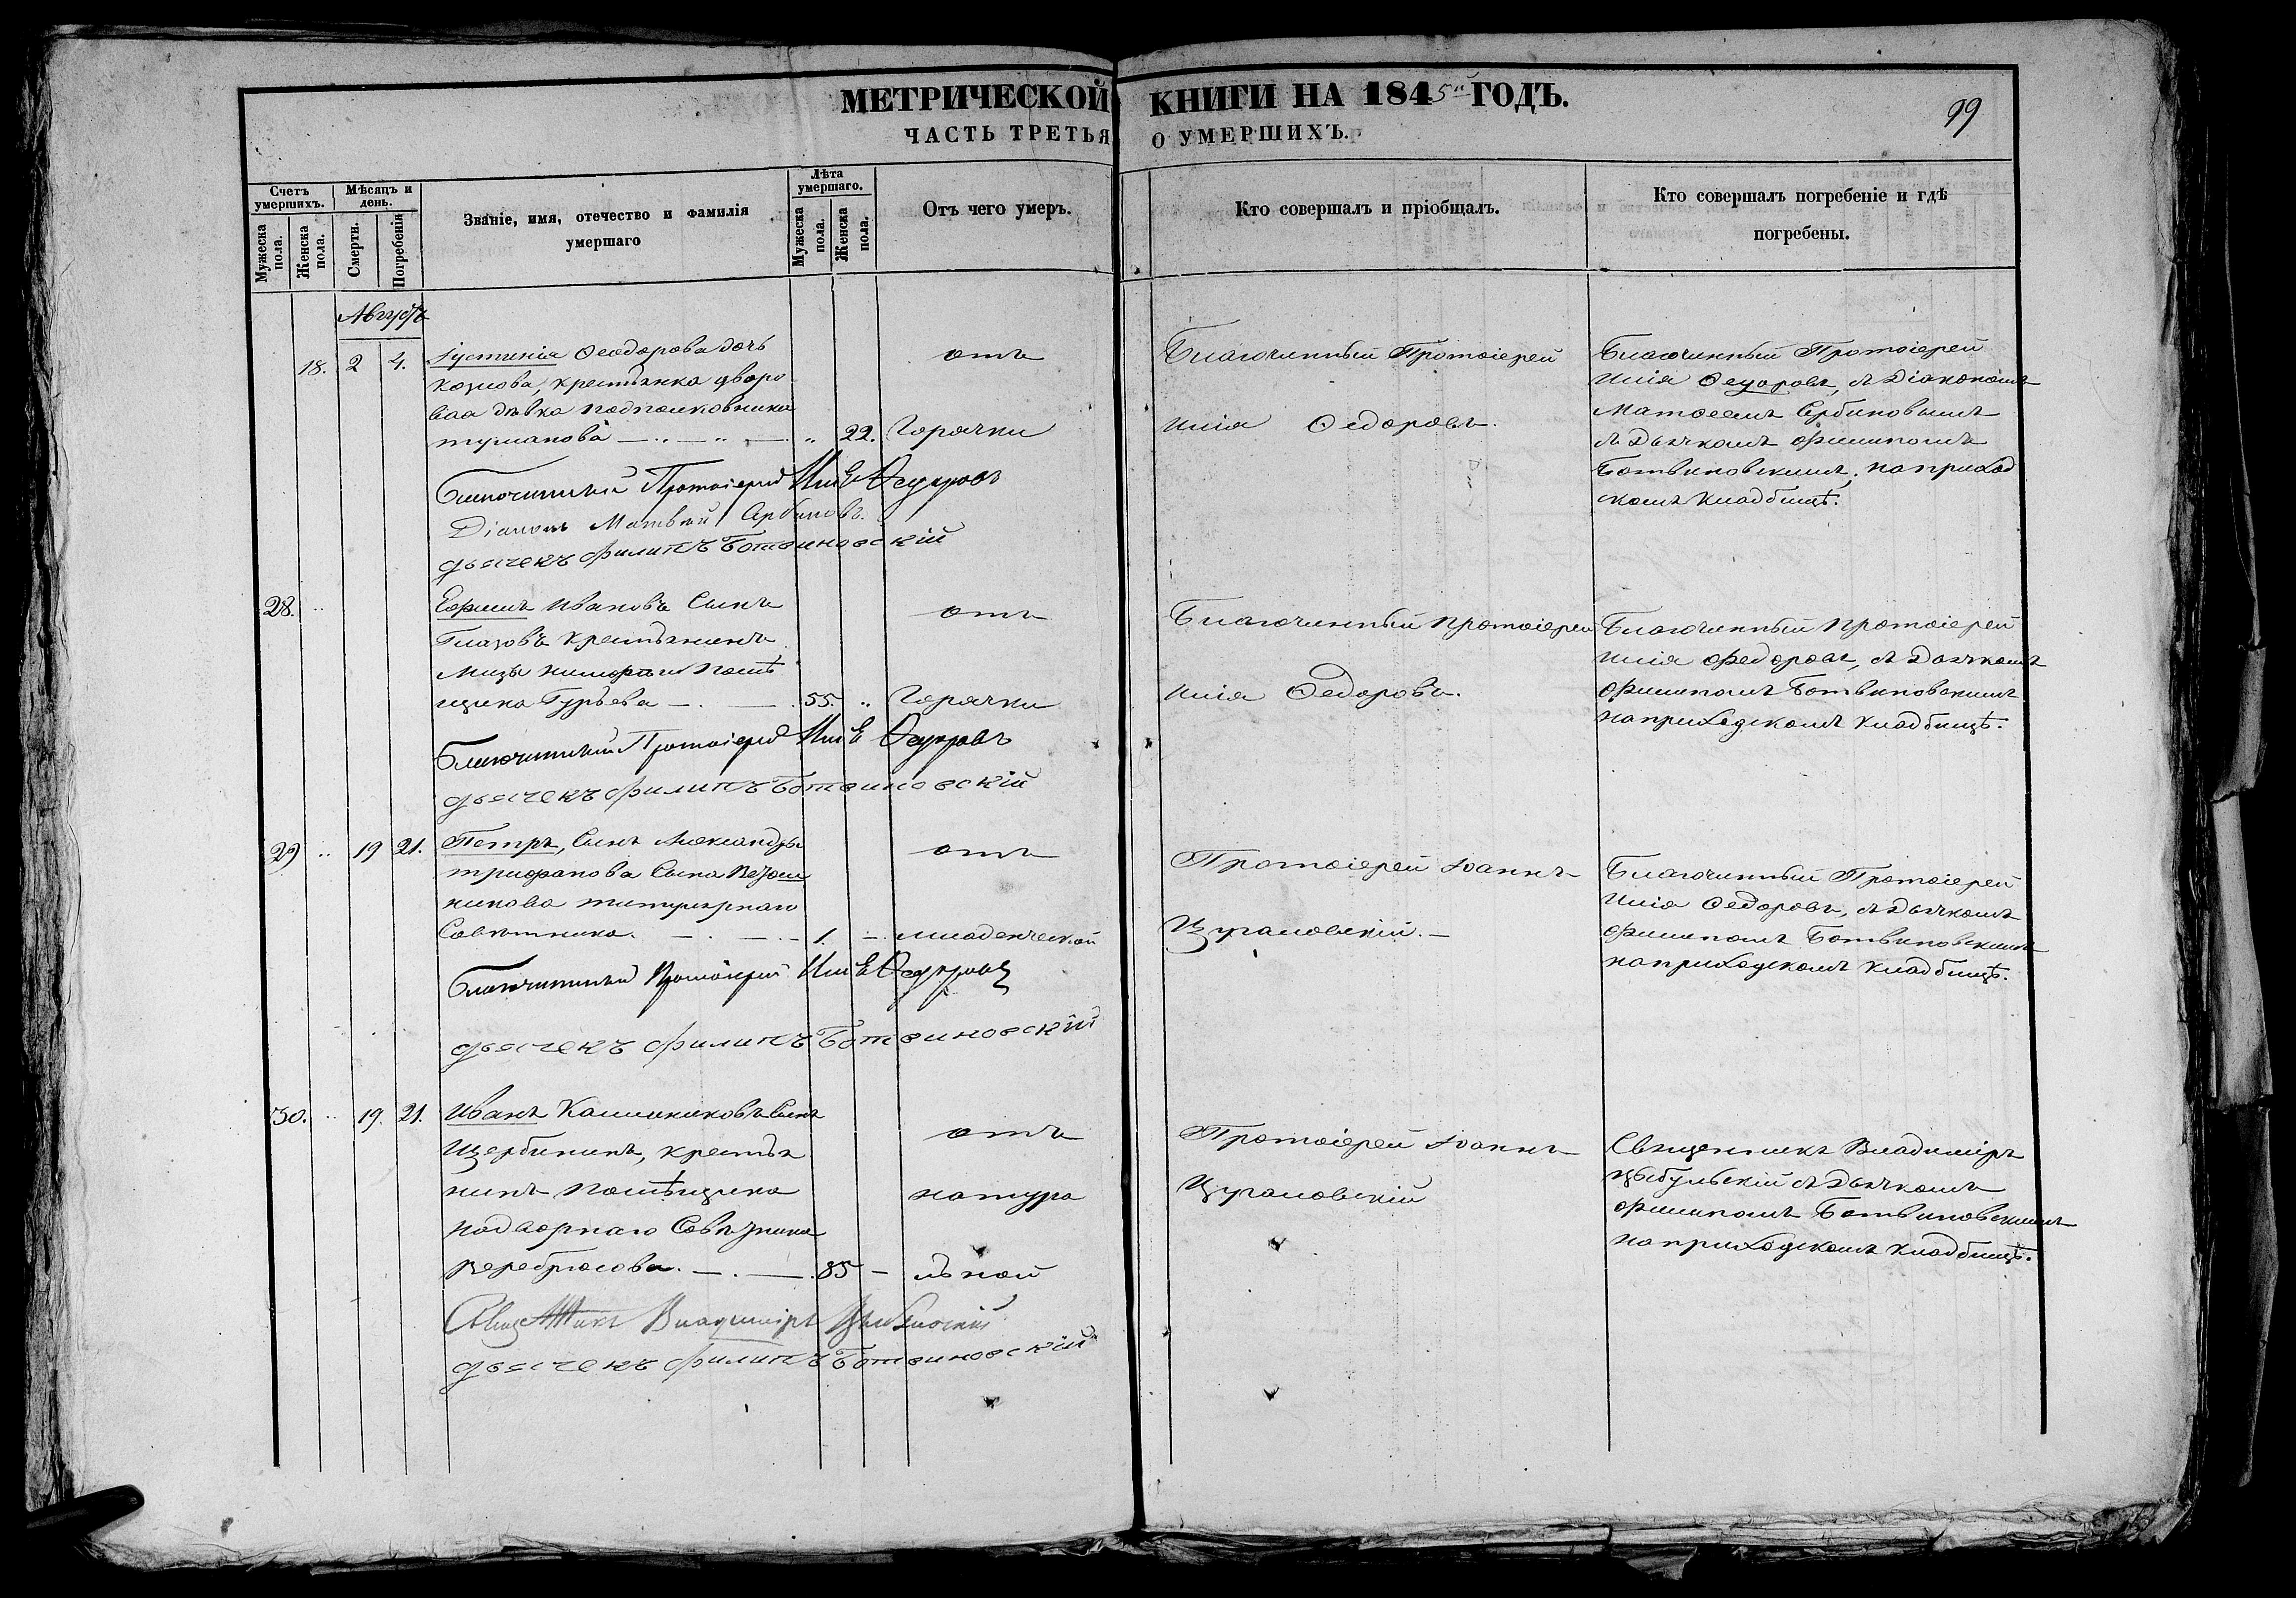 МЕТРИЧЕСКОЙ КНИГИ НА 1845й ГОДЪ.
99
ЧАСТЬ ТРЕТЬЯ О УМЕРШИХЪ.
Счетъ умершихъ.
Мужеска пола.
Женска пола.
Мѣсяцъ и день.
Смерти.
Погребенія
Званіе, имя, отечество и фамилія
умершаго
Лѣта умершаго.
Мужеска пола.
Женска пола.
Отъ чего умеръ.
Кто совершалъ и пріобщалъ.
Кто совершалъ погребеніе и гдѣ
погребены.
Августъ
18. 2 4. Іустинія Феодорова дочь
Козлова, крестьянка дворо
вая дѣвка подполковника
туманова 22.
отъ
Горячки
Благочинный Протоіерей
Илія Федоровъ.
Благочинный Протоіерей
Илія Федоровъ, съ Діакономъ
Матѳеемъ Сербиновымъ
съ Дьячкомъ Филипомъ
Ботвиновскимъ, на приход
скомъ кладбищѣ.
Благочинный Протоіерей Илія Федоровъ
Діаконъ Матвей Сербиновъ.
дьячекъ филипъ Ботвиновскій
28. Ефимъ Ивановъ Сынъ
Глазовъ крестьянинъ
помѣ
щика Гурьева 55.
отъ
Горячки
Благочинный протоіерей
Илія Федоровъ.
Благочинный протоіерей
Илія Федоровъ, съ Дьячкомъ
Филипомъ Ботвиновскимъ
на приходскомъ кладбищѣ.
Благочинный Протоіерей Илія Федоровъ
дьячекъ филипъ Ботвиновскій
29 19 21. Петръ, Сынъ Александра
трифанова Сына
никова титулярнаго
Совѣтника. 1.
отъ
младенческой
Протоіерей Іоаннъ
Цугаловскій.
Благочинный Протоіерей
Илія Федоровъ, съ Дьячкомъ
Филипомъ Ботвиновскимъ
на приходскомъ кладбищѣ.
Благочинный Протоіерей Илія Федоровъ
дьячекъ филипъ Ботвиновскій
30. 19. 21. Иванъ Калиниковъ Сынъ
Щербининъ, крестья
нинъ помѣщика
надворнаго Совѣтника
Веребрюсова. 85
отъ
натура
льной
Протоіерей Іоаннъ
Цугаловскій
Священникъ Владиміръ
Цыбульскій съ Дьячкомъ
Филипомъ Ботвиновскимъ
на приходскомъ кладбищѣ.
Священникъ Владиміръ Цыбульскій
дьячекъ филипъ Ботвиновскій